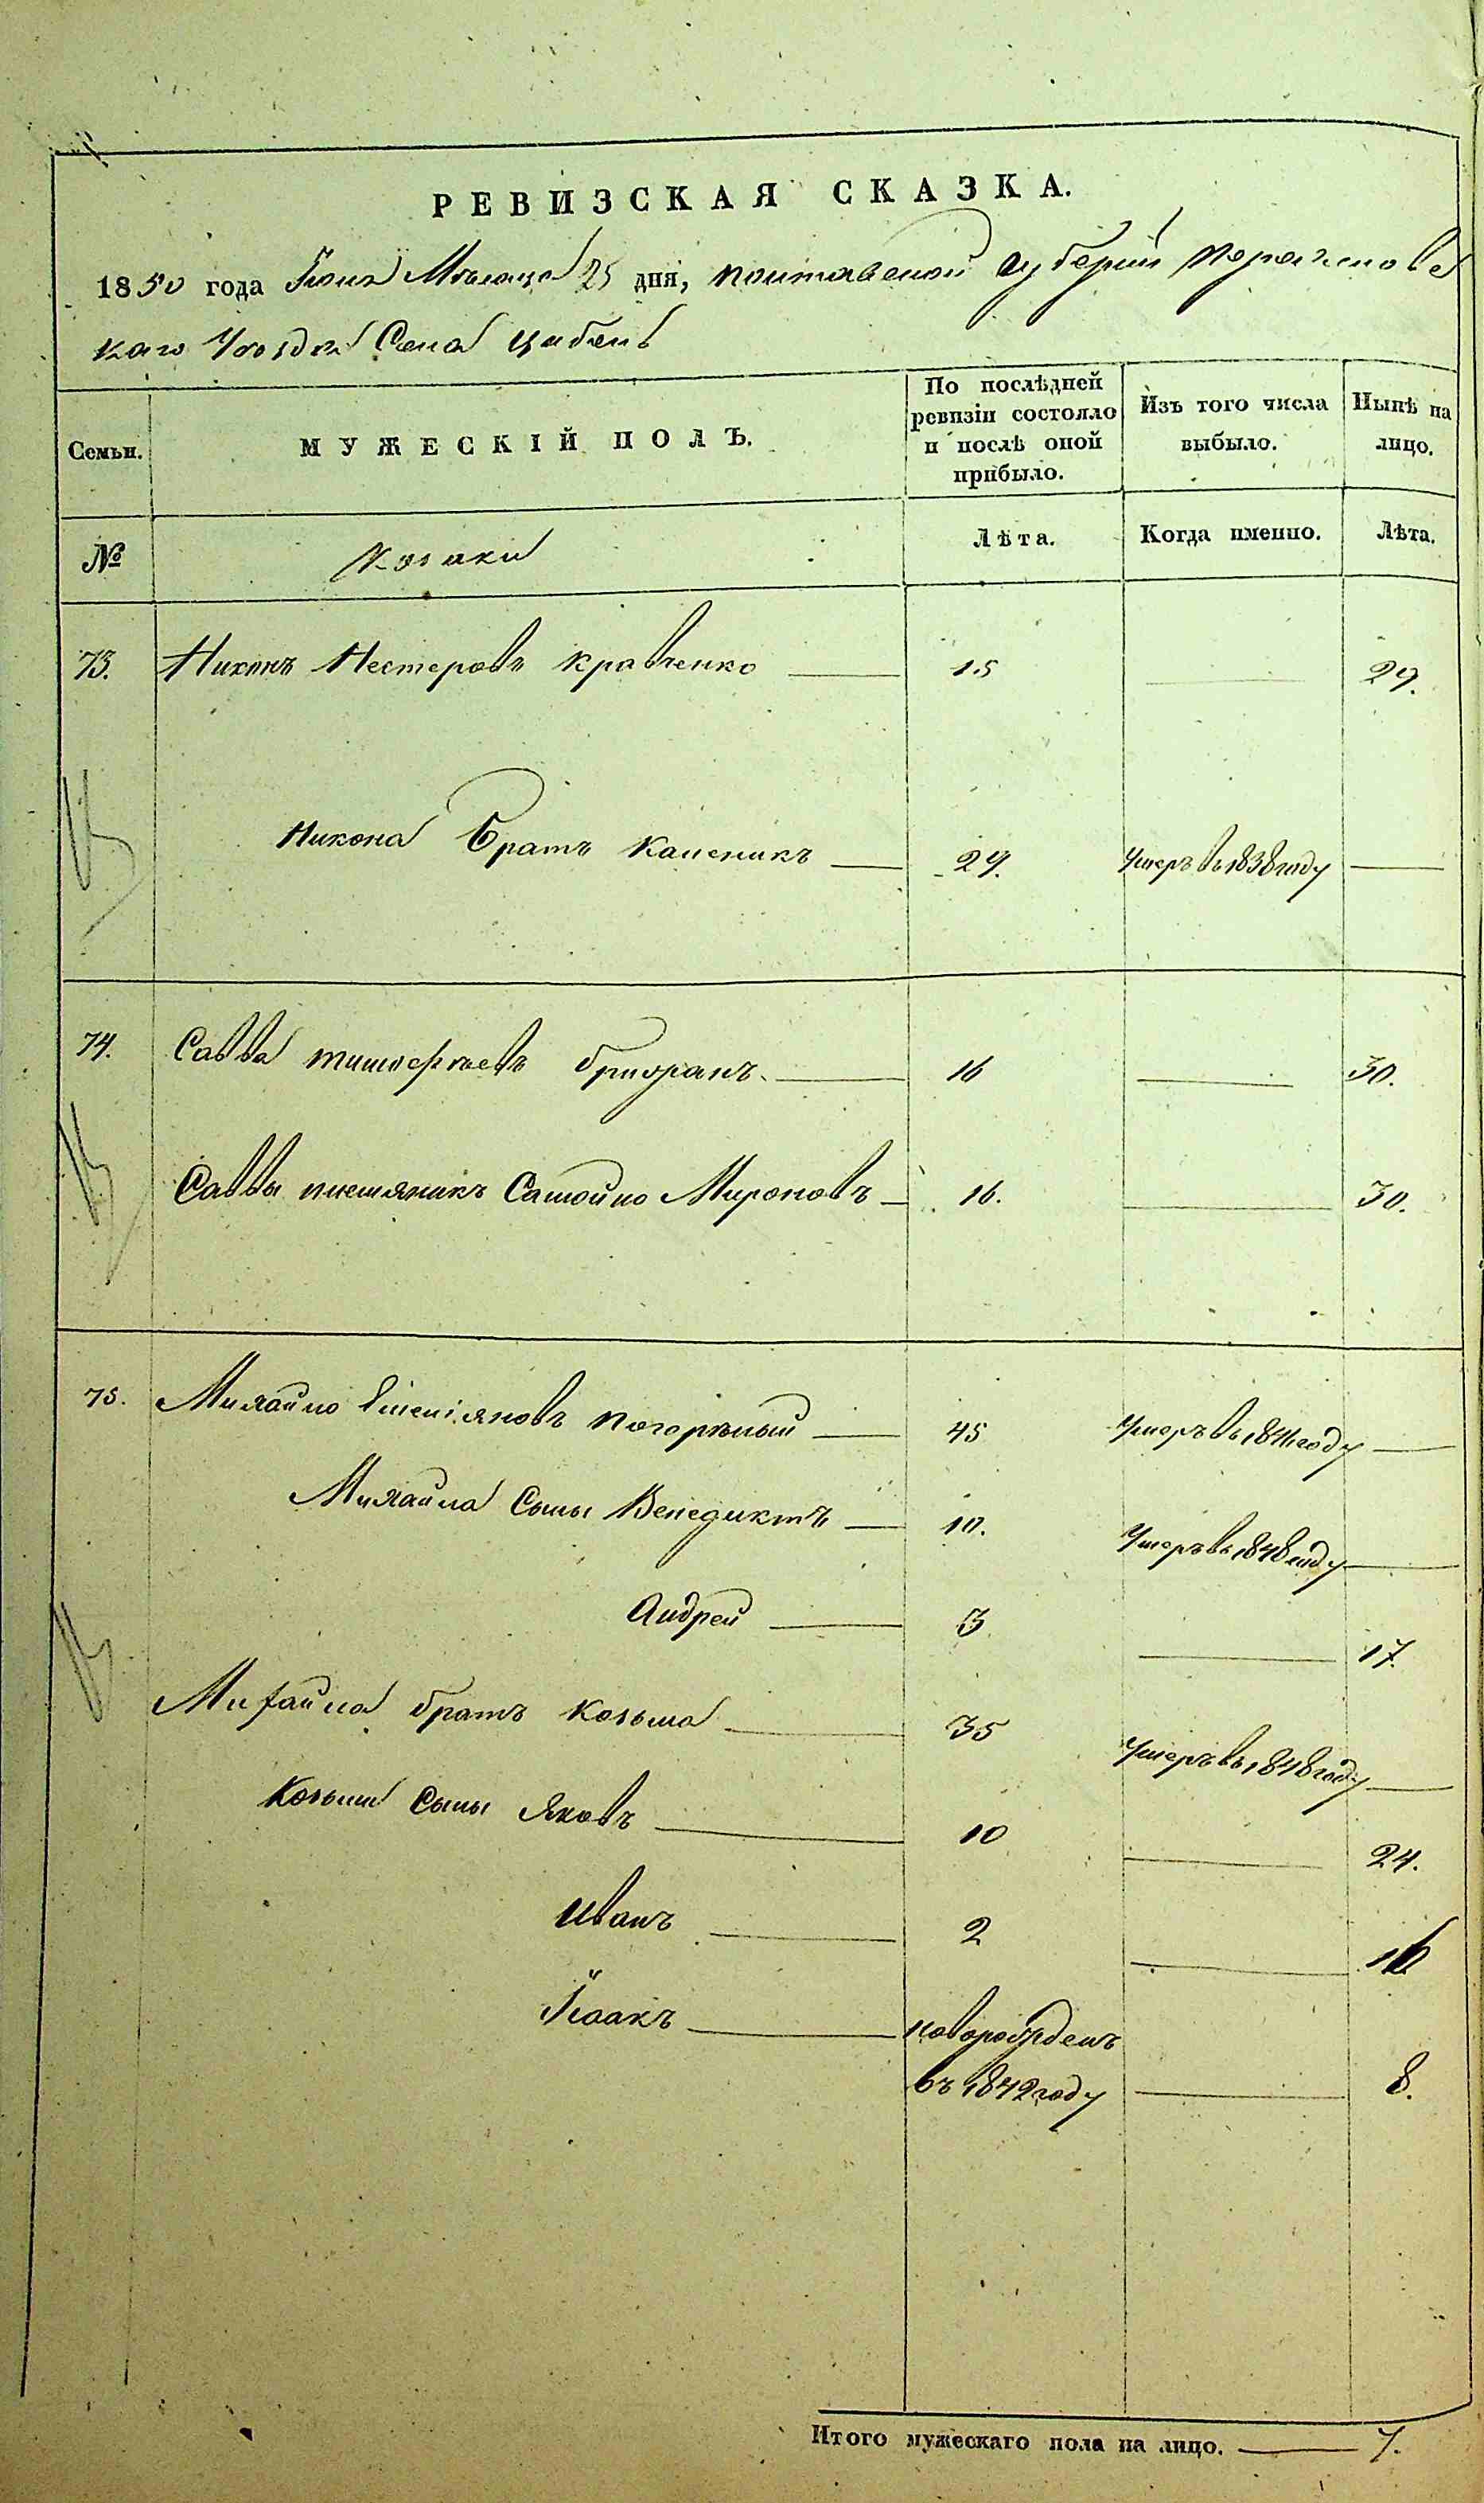 РЕВИЗСКАЯ СКАЗКА.
1850 года Іюня Мѣсяца 25 дня, Полтавской Губерніи Переяславс
каго Уѣзда Села Цибель
Семьи. МУЖЕСКІЙ ПОЛЪ. По послѣдней ревизіи состояло и послѣ оной прибыло. Изъ того числа выбыло. Нынѣ на лицо.
№ Козаки Лѣта. Когда именно. Лѣта.
73. Никонъ Нестеровъ Кравченко 15 29.
Никона Братъ Каленикъ 29. Умеръ въ 1838 году
74. Савва Тимофѣевъ 16 30.
Саввы племяникъ Самойло Мироновъ 16. 30.
75. Михайло Емельяновъ Погорѣлый 45 Умеръ въ году
Михайла Сыны Венедиктъ 10. Умеръ въ 1848 году
Андрей 3 17.
Михайла братъ Козьма 35 Умеръ въ 1848 году
Козьмы Сыны Яковъ 10 24.
Иванъ 2 16
Ісаакъ новорожденъ
въ 1842 году 8.
Итого мужескаго пола на лицо. 7.